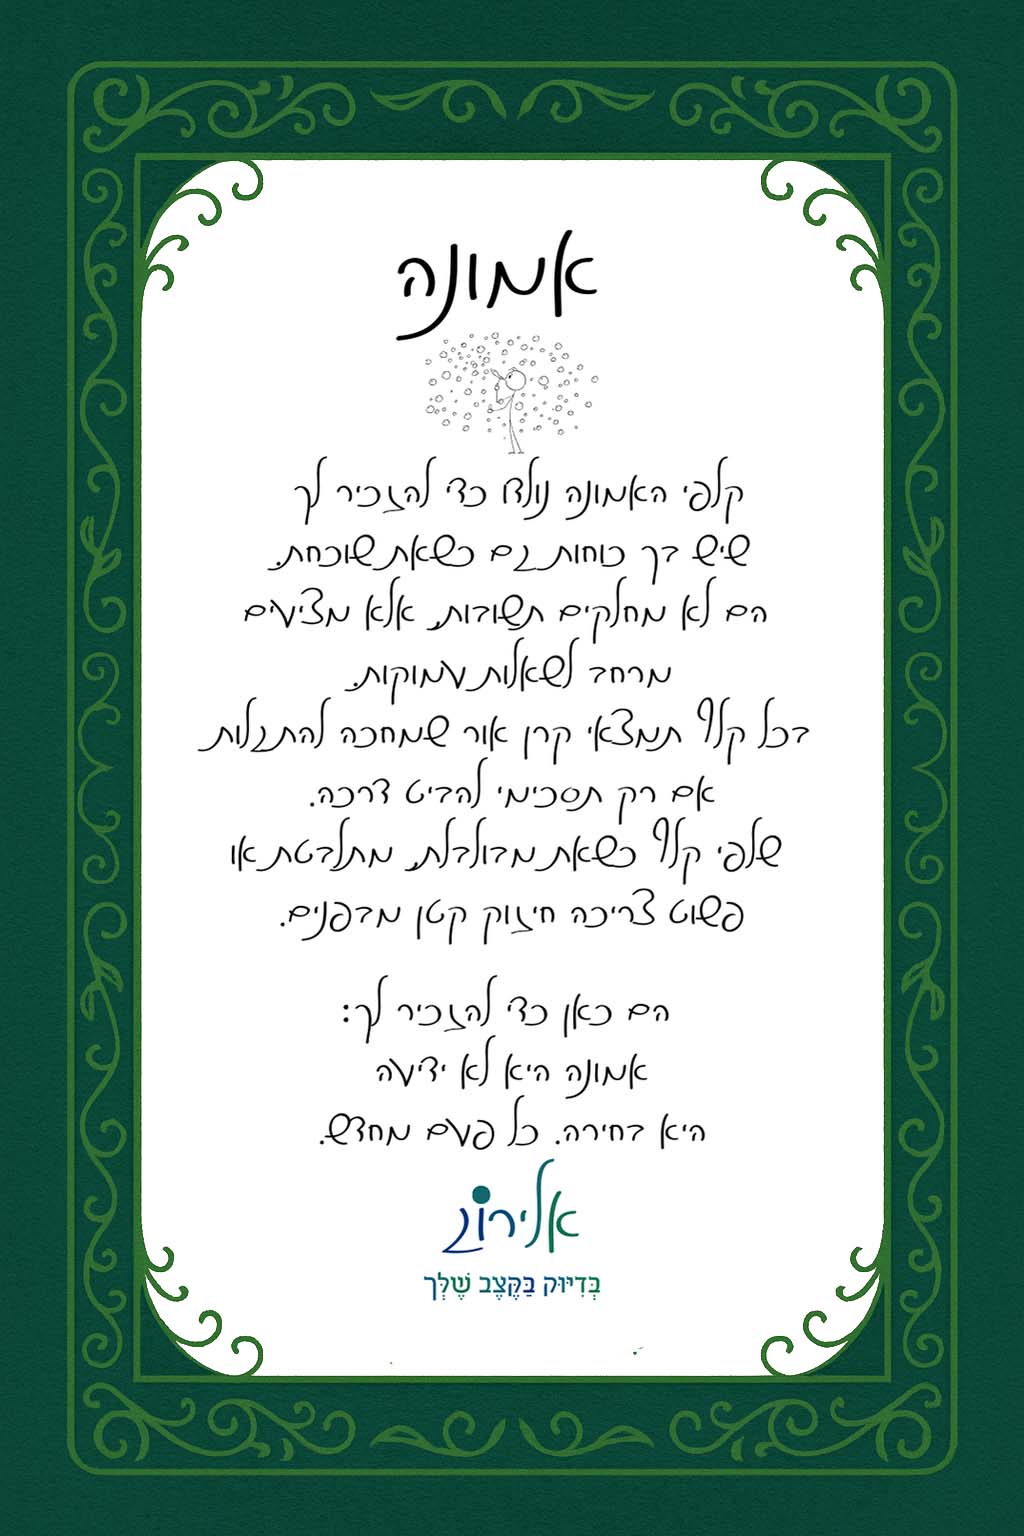 אמונה
קלפי האמונה נולדו כדי להזכיר לך
שיש בך כוחות גם כשאת שוכחת.
הם לא מחלקים תשובות, אלא מציעים
מרחב לשאלות עמוקות.
בכל קלף תמצאי קרן אור שמחכה להתגלות
אם רק תסכימי להביט דרכה.
שלפי קלף כשאת מבולבלת, מתלבטת או
פשוט צריכה חיזוק קטן מבפנים.
הם כאן כדי להזכיר לך:
אמונה היא לא ידיעה
היא בחירה. כל פעם מחדש.
אלירוֹז
בְּדִיּוּק בַּקֶּצֶב שֶׁלְּךָ